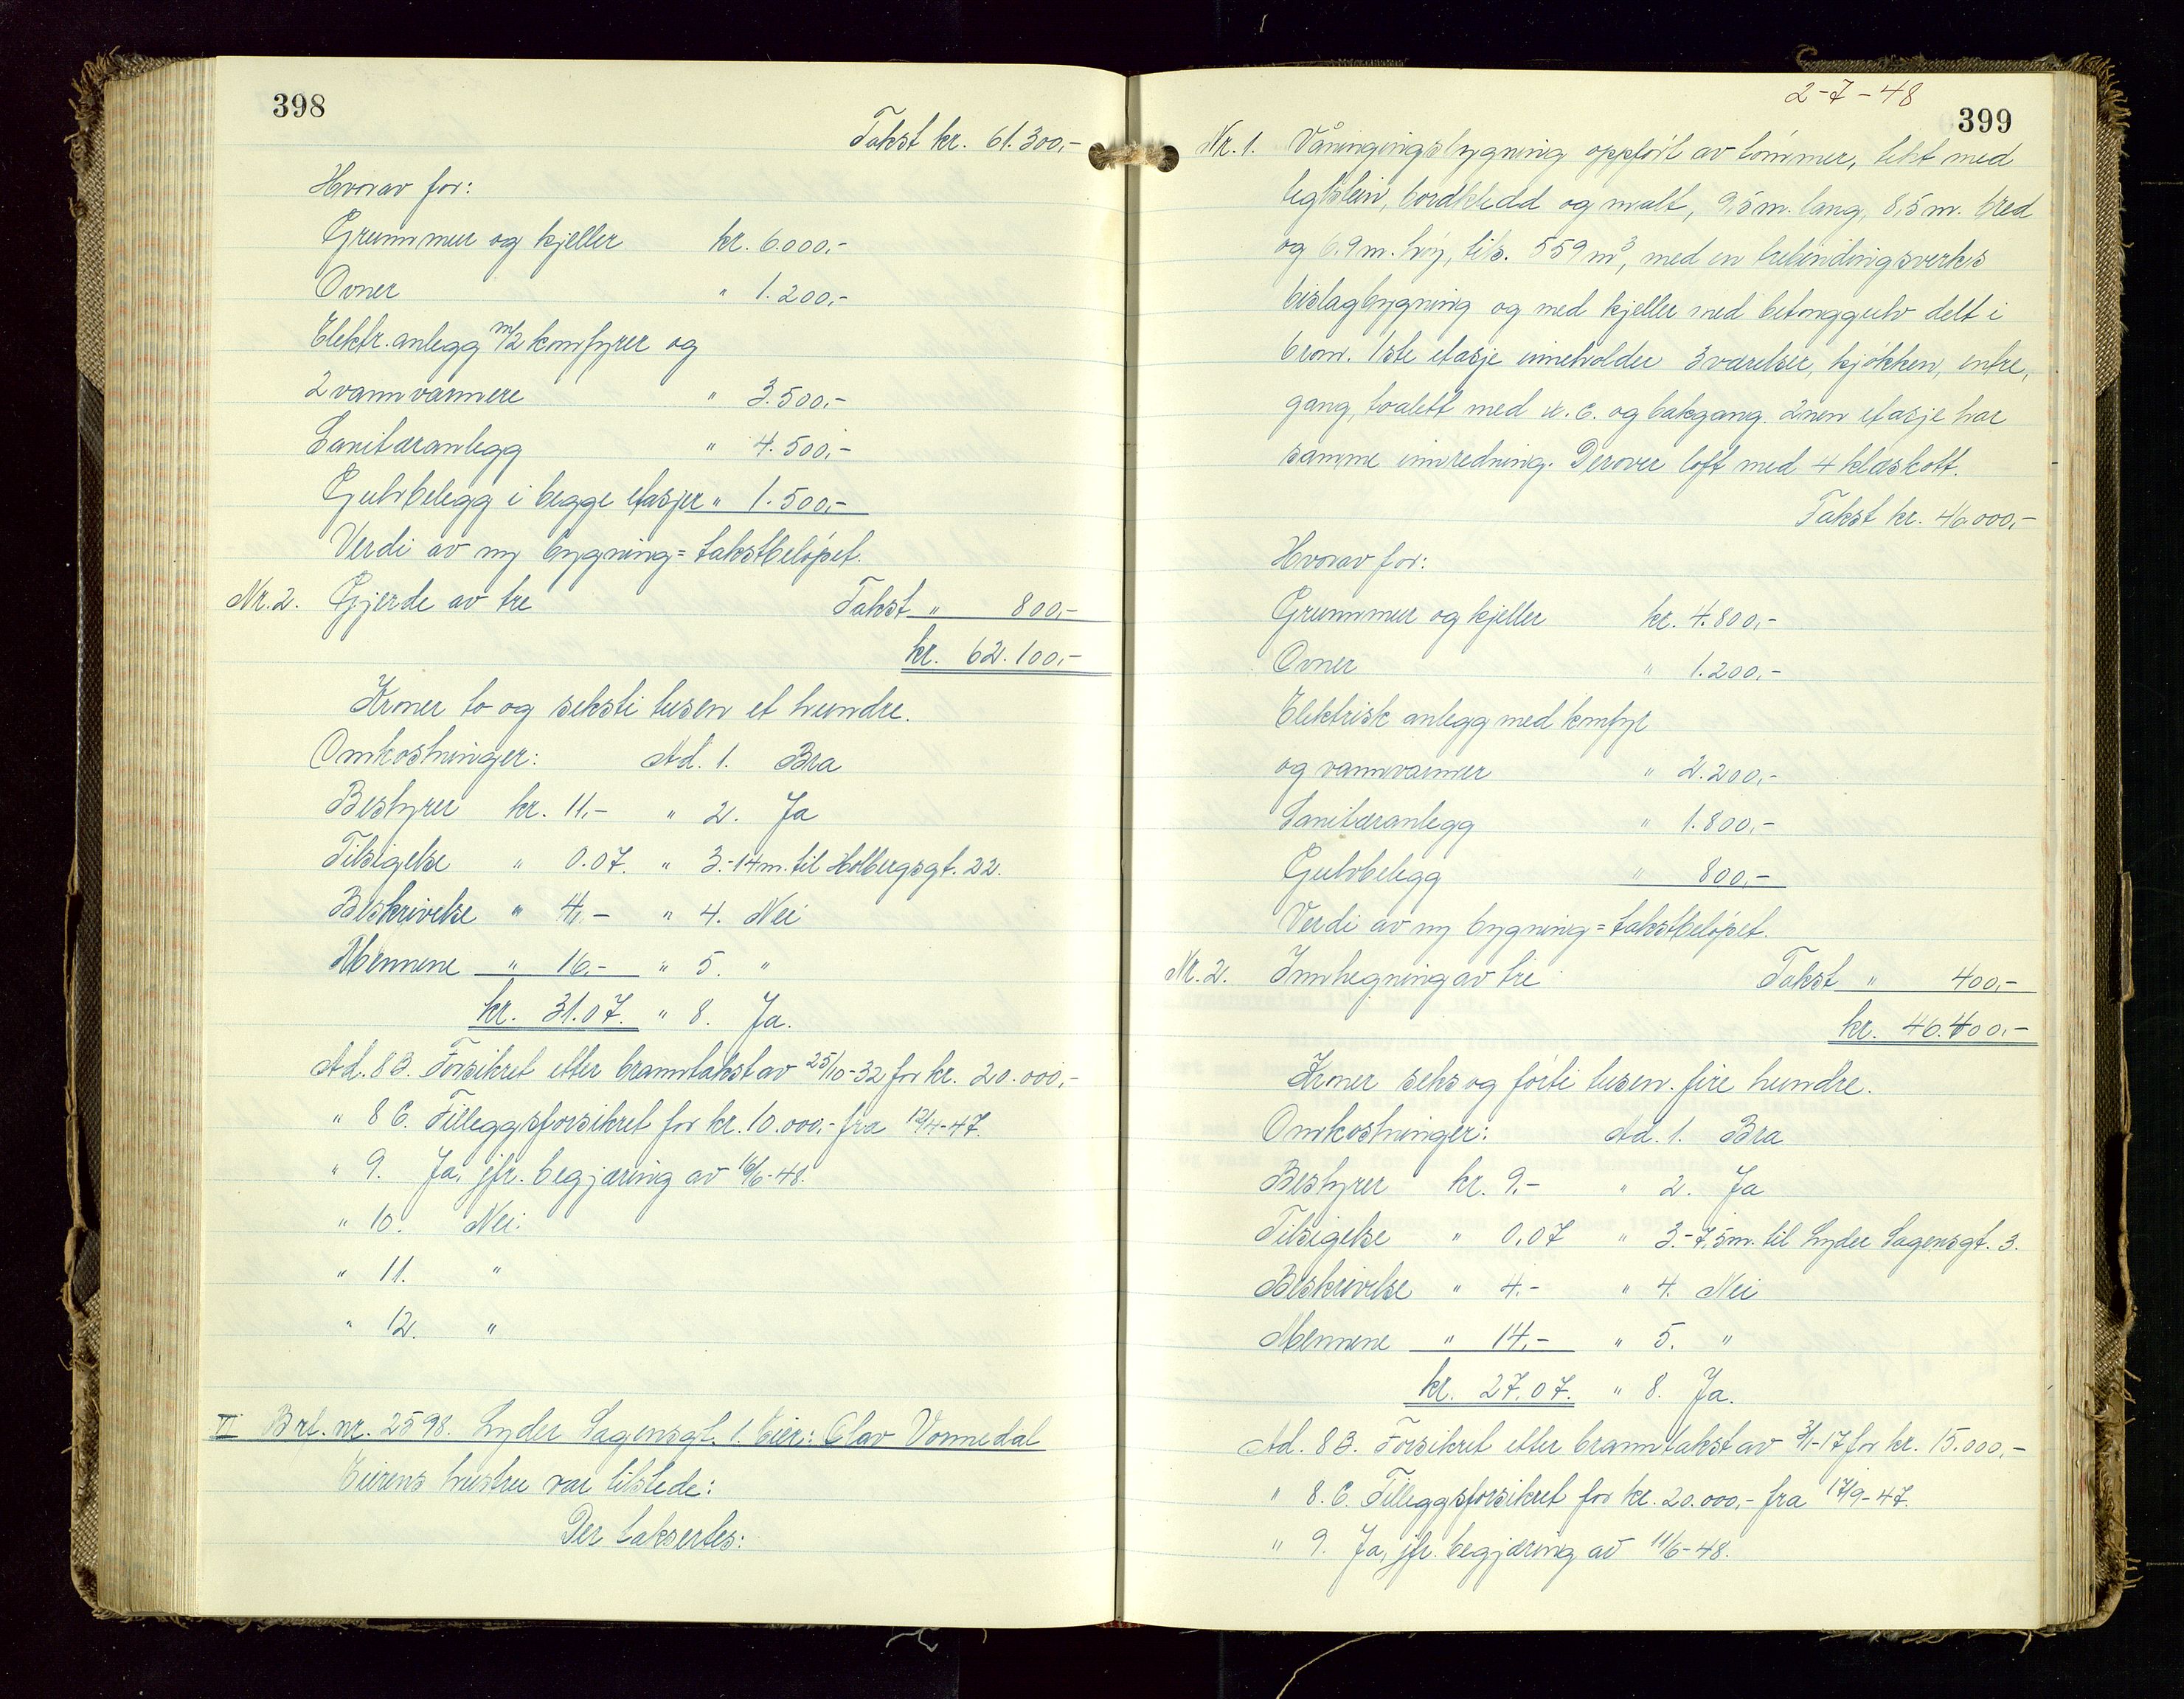 398
Takst kr. 61.300,-
Hvorav for:
Grunnmur og kjeller kr. 6.000.-
Ovner " 1.200,-
Elektr. anlegg m/2 komfyrer og
2 vannvarmere " 3.500,-
Sanitæranlegg " 4.500,-
Gulvbelegg i begge etasjer " 1.500,-
Verdi av ny bygning = takstbeløpet.
Nr. 2. Gjerde av tre Takst " 800,-
kr. 62.100,-
Kroner to og seksti tusen et hundre.
Omkostninger: Ad. 1. Bra
Bestyrer kr. 11,- " 2. Ja
Tilsigelse " 0.07. " 3.-14m. til Holbergsgt. 22.
Beskrivelse " 4,- " 4. Nei
Mennene " 16,- " 5. "
kr. 31.07. " 8. Ja.
Ad. 8B. Forsikret etter branntakst av 25/10-32 for kr. 20.000,-
" 8C. Tilleggsforsikret for kr. 10.000,- fra 12/4-47.
" 9. Ja, jfr. begjæring av 16/6-48.
" 10. Nei.
" 11. "
" 12. "
VI Brt. nr. 2598. Lyder Sagensgt. 1. Eier: Olav Vonnedal
Eierens hustru var tilstede:
Der taksertes:
2-7-48
399
Nr. 1. Våningingsbygning oppført av tømmer, tekt med
teglstein, bordkledd og malt, 9,5 m. lang, 8,5 m. bred
og 6.9 m. høy, tils. 559 m³, med en trebindingsverks
bislagbygning og med kjeller med betonggulv delt i
6 rom. 1ste etasje inneholder 3 værelser, kjøkken, entre,
gang, toalett med w.c. og bakgang. 2nen etasje har
samme innredning. Derover loft med 4 kleskott.
Takst kr. 46.000,-
Hvorav for:
Grunnmur og kjeller kr. 4.800,-
Ovner " 1.200,-
Elektrisk anlegg med komfyr
og vannvarmer " 2.200,-
Sanitæranlegg " 1.800,-
Gulvbelegg " 800,-
Verdi av ny bygning = takstbeløpet.
Nr. 2. Innhegning av tre Takst " 400,-
kr. 46.400,-
Kroner seks og førti tusen fire hundre.
Omkostninger: Ad. 1. Bra
Bestyrer kr. 9,- " 2. Ja
Tilsigelse " 0,07 " 3.-7,5m. til Lyder Sagensgt. 3.
Beskrivelse " 4.- " 4. Nei
Mennene " 14,- " 5. "
kr. 27.07. " 8. Ja.
Ad. 8B. Forsikret etter branntakst av 3/1-17 for kr. 15.000,-
" 8.C. Tilleggsforsikret for kr. 20.000,- fra 17/9-47.
" 9. Ja, jfr. begjæring av 11/6-48.